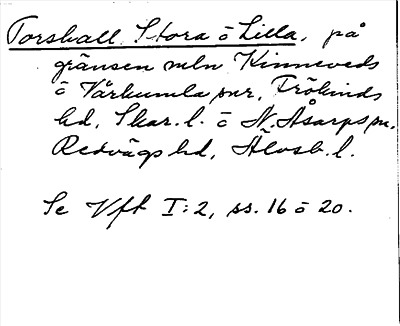 Torshall. Stora ō Lilla, på
gränsen mln Kinneveds
ō Vårkumla snr, Frökinds
hd, Skar. l. ō N. Åsarps sn,
Redvägs hd, Älvsb. l.
Se Vft I:2, ss. 16 ō 20.